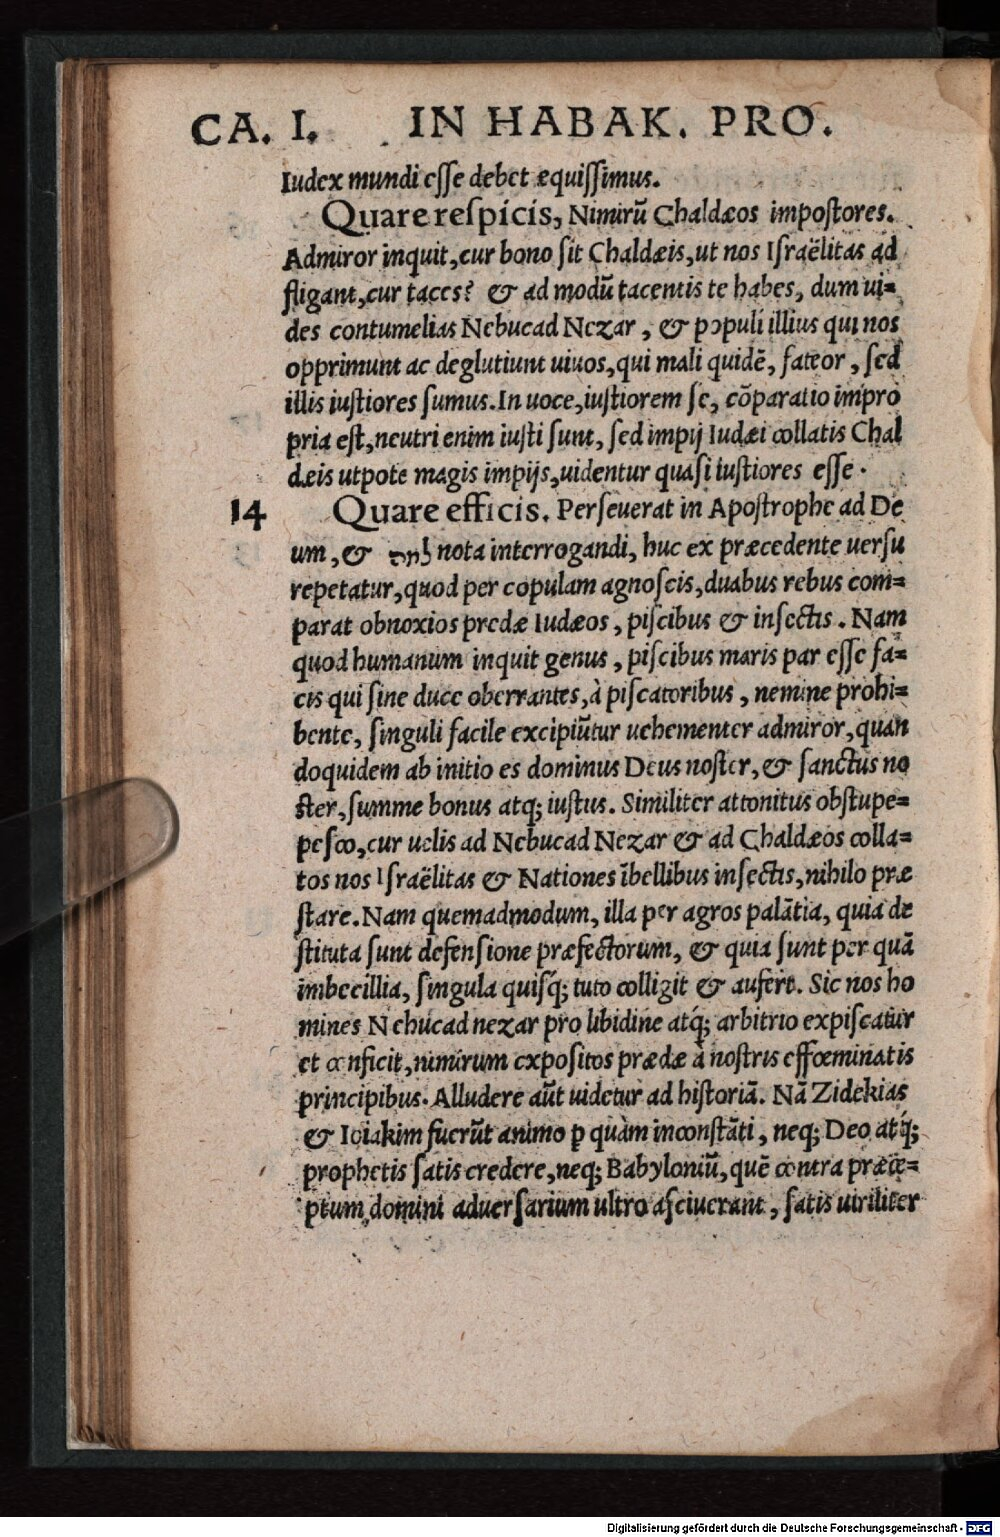 CA. I. IN HABAK. PRO.
Iudex mundi esse debet æquissimus.
Quare respicis, Nimirũ Chaldæos impostores.
Admiror inquit, cur bono sit Chaldæis, ut nos Israëlitas ad
fligant, cur taces? & ad modũ tacentis te habes, dum ui=
des contumelias Nebucad Nezar, & populi illius qui nos
opprimunt ac deglutiunt uiuos, qui mali quidẽ, fateor, sed
illis iustiores sumus. In uoce, iustiorem se, cõparatio impro
pria est, neutri enim iusti sunt, sed impij Iudæi collatis Chal
dæis utpote magis impijs, uidentur quasi iustiores esse.
14 Quare efficis. Perseuerat in Apostrophe ad De
um, & למה nota interrogandi, huc ex præcedente uersu
repetatur, quod per copulam agnoscis, duabus rebus com=
parat obnoxios prædæ Iudæos, piscibus & insectis. Nam
quod humanum inquit genus, piscibus maris par esse fa=
cis qui sine duce oberrantes, à piscatoribus, nemine prohi=
bente, singuli facile excipiũtur uehementer admiror, quan
doquidem ab initio es dominus Deus noster, & sanctus no
ster, summe bonus atq; iustus. Similiter attonitus obstupe=
pesco, cur uelis ad Nebucad Nezar & ad Chaldæos colla=
tos nos Israëlitas & Nationes ĩbellibus insectis, nihilo præ
stare. Nam quemadmodum, illa per agros palãtia, quia de
stituta sunt defensione præfectorum, & quia sunt per quã
imbecillia, singula quisq́; tuto colligit & aufert. Sic nos ho
mines Nebucad nezar pro libidine atq́; arbitrio expiscatur
et conficit, nimirum expositos prædæ à nostris effœminatis
principibus. Alludere aũt uidetur ad historiã. Nã Zidekias
& Ioiakim fuerũt animo p quàm inconstãti, neq; Deo atq́;
prophetis satis credere, neq; Babyloniũ, quẽ contra præce=
ptum domini aduersarium ultro asciuerant, satis uiriliter
Digitalisierung gefördert durch die Deutsche Forschungsgemeinschaft - DFG